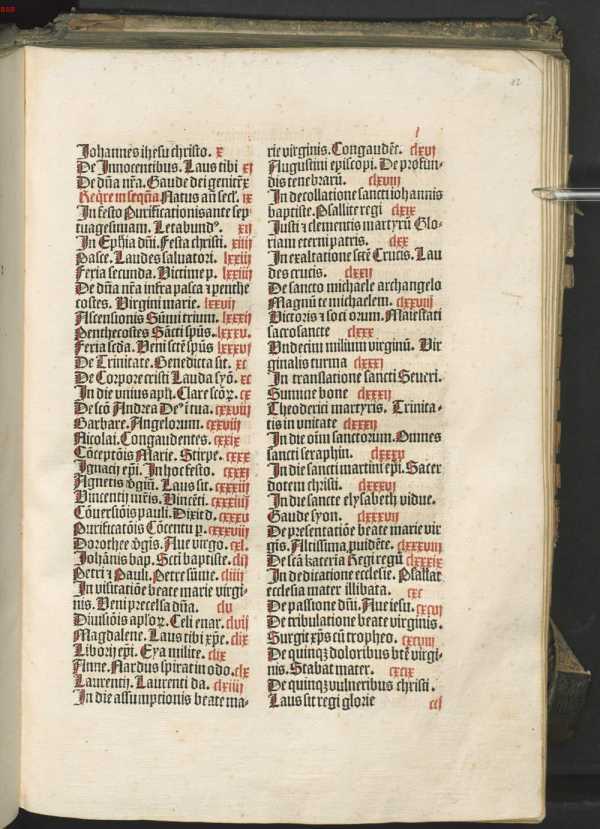 12
Johannes ihesu christo. x
De Innocentibus. Laus tibi xi
De dn̄a nr̄a. Gaude dei genitr̄x
Reqͥre in seq̄tia Natus an̄ secl̓. ix
In festo Purificationis ante sep
tuagesimam. Letabundꝰ. xii
In Eph̄ia dn̄i. Festa christi. xiiii
Pasce. Laudes saluatori. lxxiii
Feria secunda. Victime p. lxxiiii
De dn̄a nr̄a infra pasca ⁊ penthe
costes. Virgini marie. lxxvii
Ascensionis Sūmi trium. lxxxii
Penthecostes Sācti spūs. lxxxv.
Feria scd̄a. Veni sctē spūs lxxxvi
De Trinitate. Benedicta sit. xc
De Corpore cristi Lauda syō. xc
In die vnius apl̄i. Clare sctōꝝ. cx
De sctō Andrea Deꝰ in tua. cxxviii
Barbare. Angelorum. cxxviii
Nicolai. Congaudentes. cxxix
Cōceptōis Marie. Stirpe. cxxx
Ignacij epī. In hoc festo. cxxxi
Agnetis v̓gīs. Laus sit. cxxxiii
Vincentij mr̄is. Vincēti. cxxxiiii
Cōuersiōis pauli. Dixit d. cxxxv
Purificatōis Cōcentu p. cxxxviii
Dorothee v̓gīs. Aue virgo. cxl.
Joh̄anis bap. Scti baptiste. clii
Petri ⁊ Pauli. Petre sūme. cliiii
In visitatiōe beate marie virgi-
nis. Veni precelsa dn̄a. clv
Diuisiōis apl̓oꝝ. Celi enar. clvii
Magdalene. Laus tibi xp̄e. clix
Liborij epī. Eya milite. clix
Anne. Nardus spirat in odo. clx
Laurentij. Laurenti da. clxiiii
In die assumptionis beate ma-
rie virginis. Congaudēt. clxvi
Augustini episcopi. De profun-
dis tenebrarū. clxviii
In decollatione sancti iohannis
baptiste. Psallite regi clxix
Justi ⁊ clementis martyrū Glo-
riam eterni patris. clxx
In exaltatione sctē Crucis. Lau
des crucis. clxxii
De sancto michaele archangelo
Magnū te michaelem. clxxviii
Victoris ⁊ soci orum. Maiestati
sacrosancte clxxx
Vndecim milium virginū. Vir
ginalis turma clxxxi
In translatione sancti Seueri.
Summe bone clxxxii
Theoderici martyris. Trinita-
tis in vnitate clxxxii
In die oīm sanctorum. Omnes
sancti seraphin. clxxxv
In die sancti martini epī. Sacer
dotem christi. clxxxvi
In die sancte elysabeth vidue.
Gaude syon. clxxxvii
De presentatiōe beate marie vir
gīs. Altissima, ꝓuidēte. clxxxviii
De sctā katerīa Regi regū clxxxix
In dedicatione ecclesie. Psallat
ecclesia mater illibata. cxc
De passione dn̄i. Aue iesu. cxcvi
De tribulatione beate virginis.
Surgit xp̄s cū tropheo. cxcviii
De quinqꝫ doloribus btē virgi-
nis. Stabat mater. cxcix
De quinqꝫ vulneribus christi.
Laus sit regi glorie cc